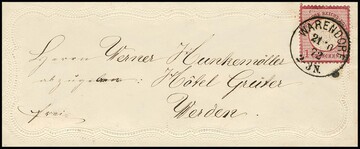 WARENDORF
21 6
72
2-3N.
Herrn Werner Hunkemöller
abzugeben: Hôtel Grüter
frei. Werden.